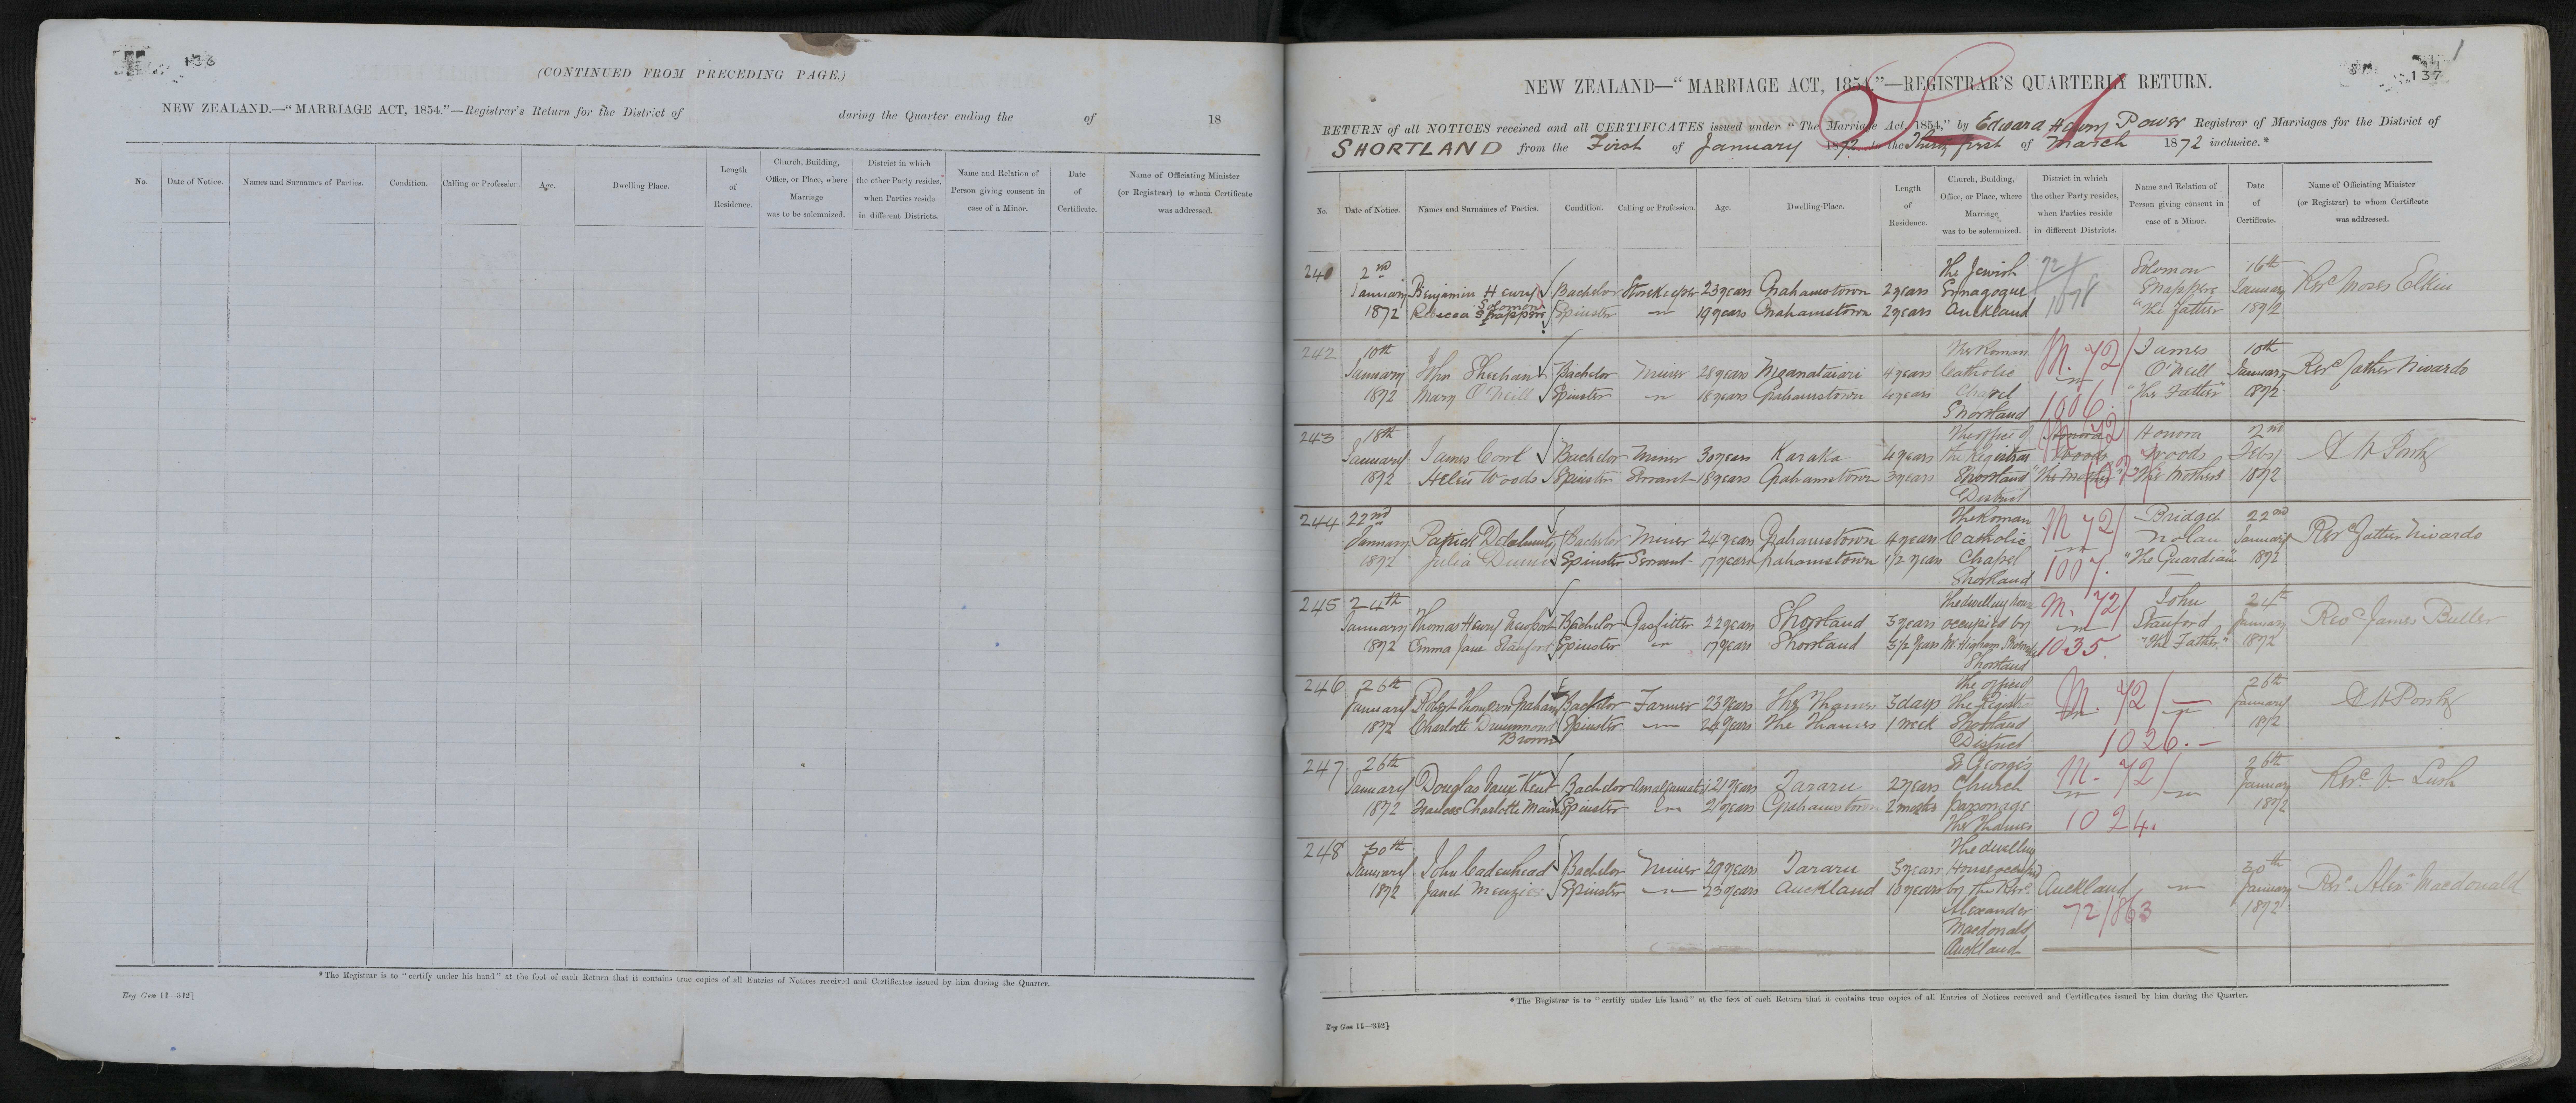 136
(CONTINUED FROM PRECEDING PAGE.)
NEW ZEALAND.—"MARRIAGE ACT, 1854."—Registrar's Return for the District of during the Quarter ending the of 18
No.
Date of Notice.
Names and Surnames of Parties.
Condition.
Calling or Profession.
Age.
Dwelling Place.
Length
of
Residence.
Church, Building,
Office, or Place, where
Marriage
was to be solemnized.
District in which
the other Party resides,
when Parties reside
in different Districts.
Name and Relation of
Person giving consent in
case of a Minor.
Date
of
Certificate.
Name of Officiating Minister
(or Registrar) to whom Certificate
was addressed.
*The Registrar is to "certify under his hand" at the foot of each Return that it contains true copies of all Entries of Notices received and Certificates issued by him during the Quarter.
Reg Gen 11—312]
137
NEW ZEALAND—"MARRIAGE ACT, 1854."—REGISTRAR'S QUARTERLY RETURN.
RETURN of all NOTICES received and all CERTIFICATES issued under "The Marriage Act, 1854," by Edward Henry Power Registrar of Marriages for the District of
SHORTLAND from the First of January 1872 to the Thirty first of March 1872 inclusive.*
No.
Date of Notice.
Names and Surnames of Parties.
Condition.
Calling or Profession.
Age.
Dwelling-Place.
Length
of
Residence.
Church, Building,
Office, or Place, where
Marriage
was to be solemnized.
District in which
the other Party resides,
when Parties reside
in different Districts.
Name and Relation of
Person giving consent in
case of a Minor.
Date
of
Certificate.
Name of Officiating Minister
(or Registrar) to whom Certificate
was addressed.
2nd The Jewish 72/ Solomon 16th
January Benjamin Henry Bachelor Storekeeper 23 years Grahamstown 2 years Synagogue January Revd Moses Elkin
1872 Rebecca Solomon Spinster 19 years Grahamstown 2 years Auckland "The Father 1872
242 10th The Roman M. 72/ James 10th
January John Sheehan Bachelor Miner 28 years 4 years Catholic O'Neill January Revd Father Nivardo
1872 Mary O'Neill Spinster 18 years Grahamstown 4 years Chapel "The Father" 1872
Shortland 1006.
243 18th The office of Honora M 72/ Honora 2nd
January James Bachelor Miner 30 years Karaka 4 years the Registrar Woods Woods Feby
1872 Helen Woods Spinster Servant 18 years Grahamstown 3 years Shortland "The Mother" "The Mother" 1872
District
244 22nd The Roman M 72/ Bridget 22nd
January Patrick Bachelor Miner 24 years Grahamstown 4 years Catholic Nolan January Revd Father Nivardo
1872 Julia Spinster Servant 17 years Grahamstown 1/2 years Chapel "The Guardian" 1872
Shortland 1007.
245 24th The dwelling house M. 72/ John 24th
January Thomas Henry Newport Bachelor Gasfitter 22 years Shortland 3 years occupied by Stanford January Revd James Buller
1872 Emma Jane Stanford Spinster 17 years Shortland 3 1/2 years Mr Higham 1035. "The Father" 1872
Shortland
246 26th The office of M. 72/ 26th
January Robert Thompson Graham Bachelor Farmer 23 years The Thames 3 days the January
1872 Charlotte Drummond Spinster 24 years The Thames 1 week Shortland 1872
Brown District 1026.
247 26th St Georges M. 72/ 26th
January Douglas Vaux Kent Bachelor 21 years Tararu 2 years Church January Revd V Lush
1872 Frances Charlotte Main Spinster 21 years Grahamstown 2 months parsonage 1872
The Thames 1024.
248 30th The dwelling
January John Cadenhead Bachelor Miner 29 years Tararu 3 years House occupied 30th
1872 Janet Menzies Spinster 23 years Auckland 10 years by the Revd Auckland January Revd Alexr Macdonald
Alexander 72/863 1872
Macdonald
Auckland
*The Registrar is to "certify under his hand" at the foot of each Return that it contains true copies of all Entries of Notices received and Certificates issued by him during the Quarter.
Reg Gen 11—312]